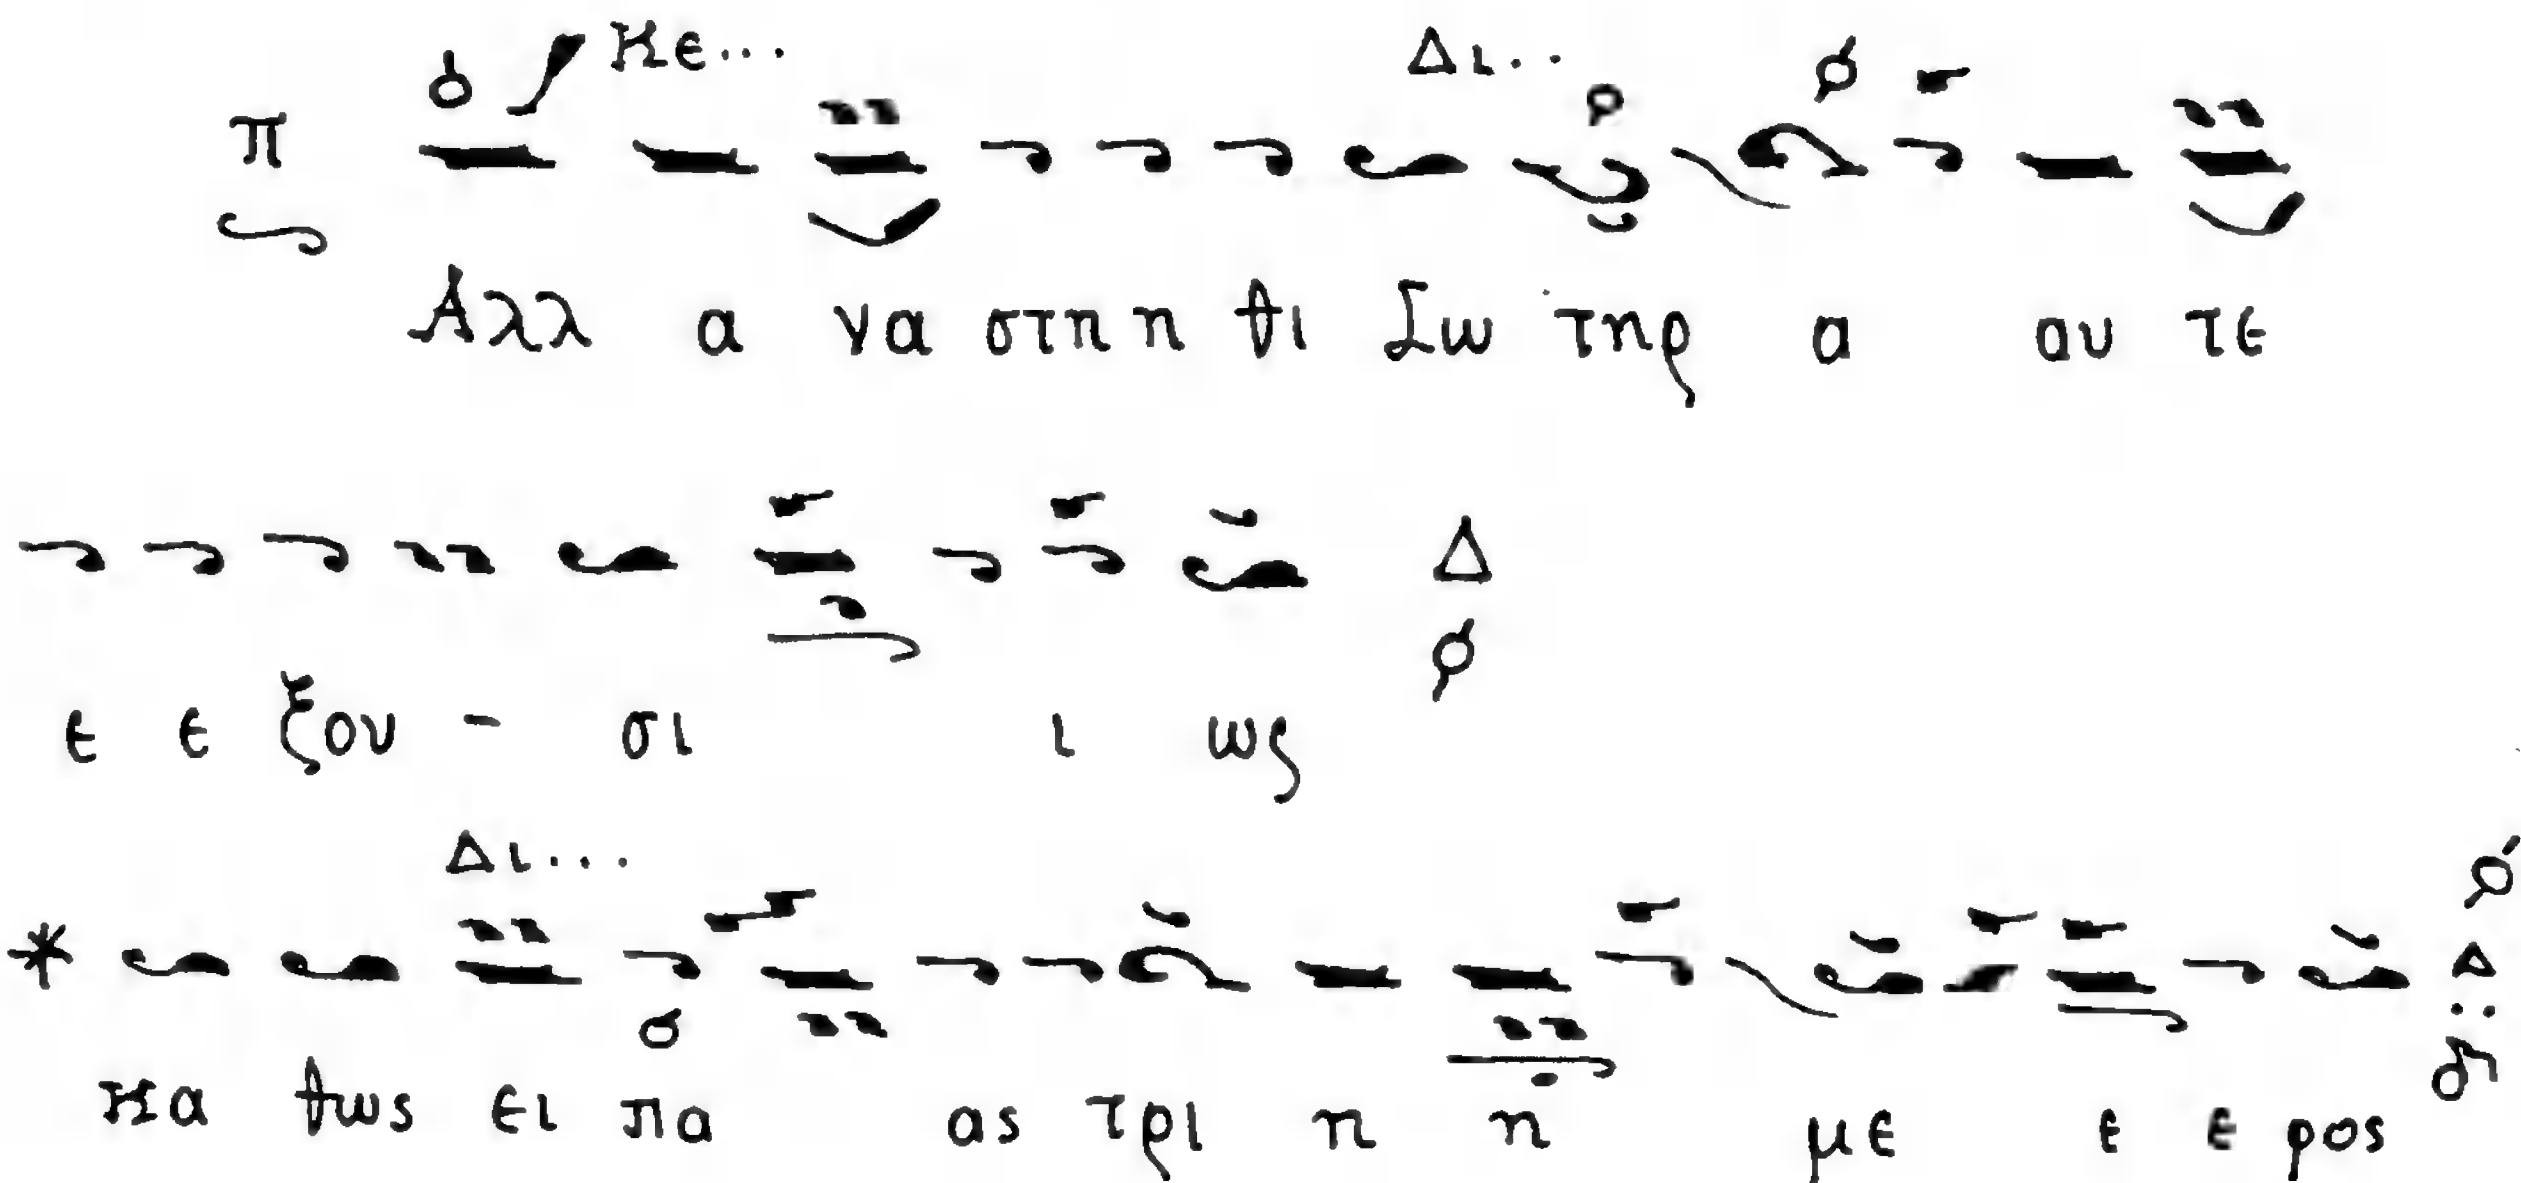 π Κε... Δι..
Αλλ α να στη η θι Σω τηρ α αυ τε
Δ
ε ε ξου - σι ι ως
Δι...
* Δ
κα θως ει πα ας τρι η η με ε ε ρος